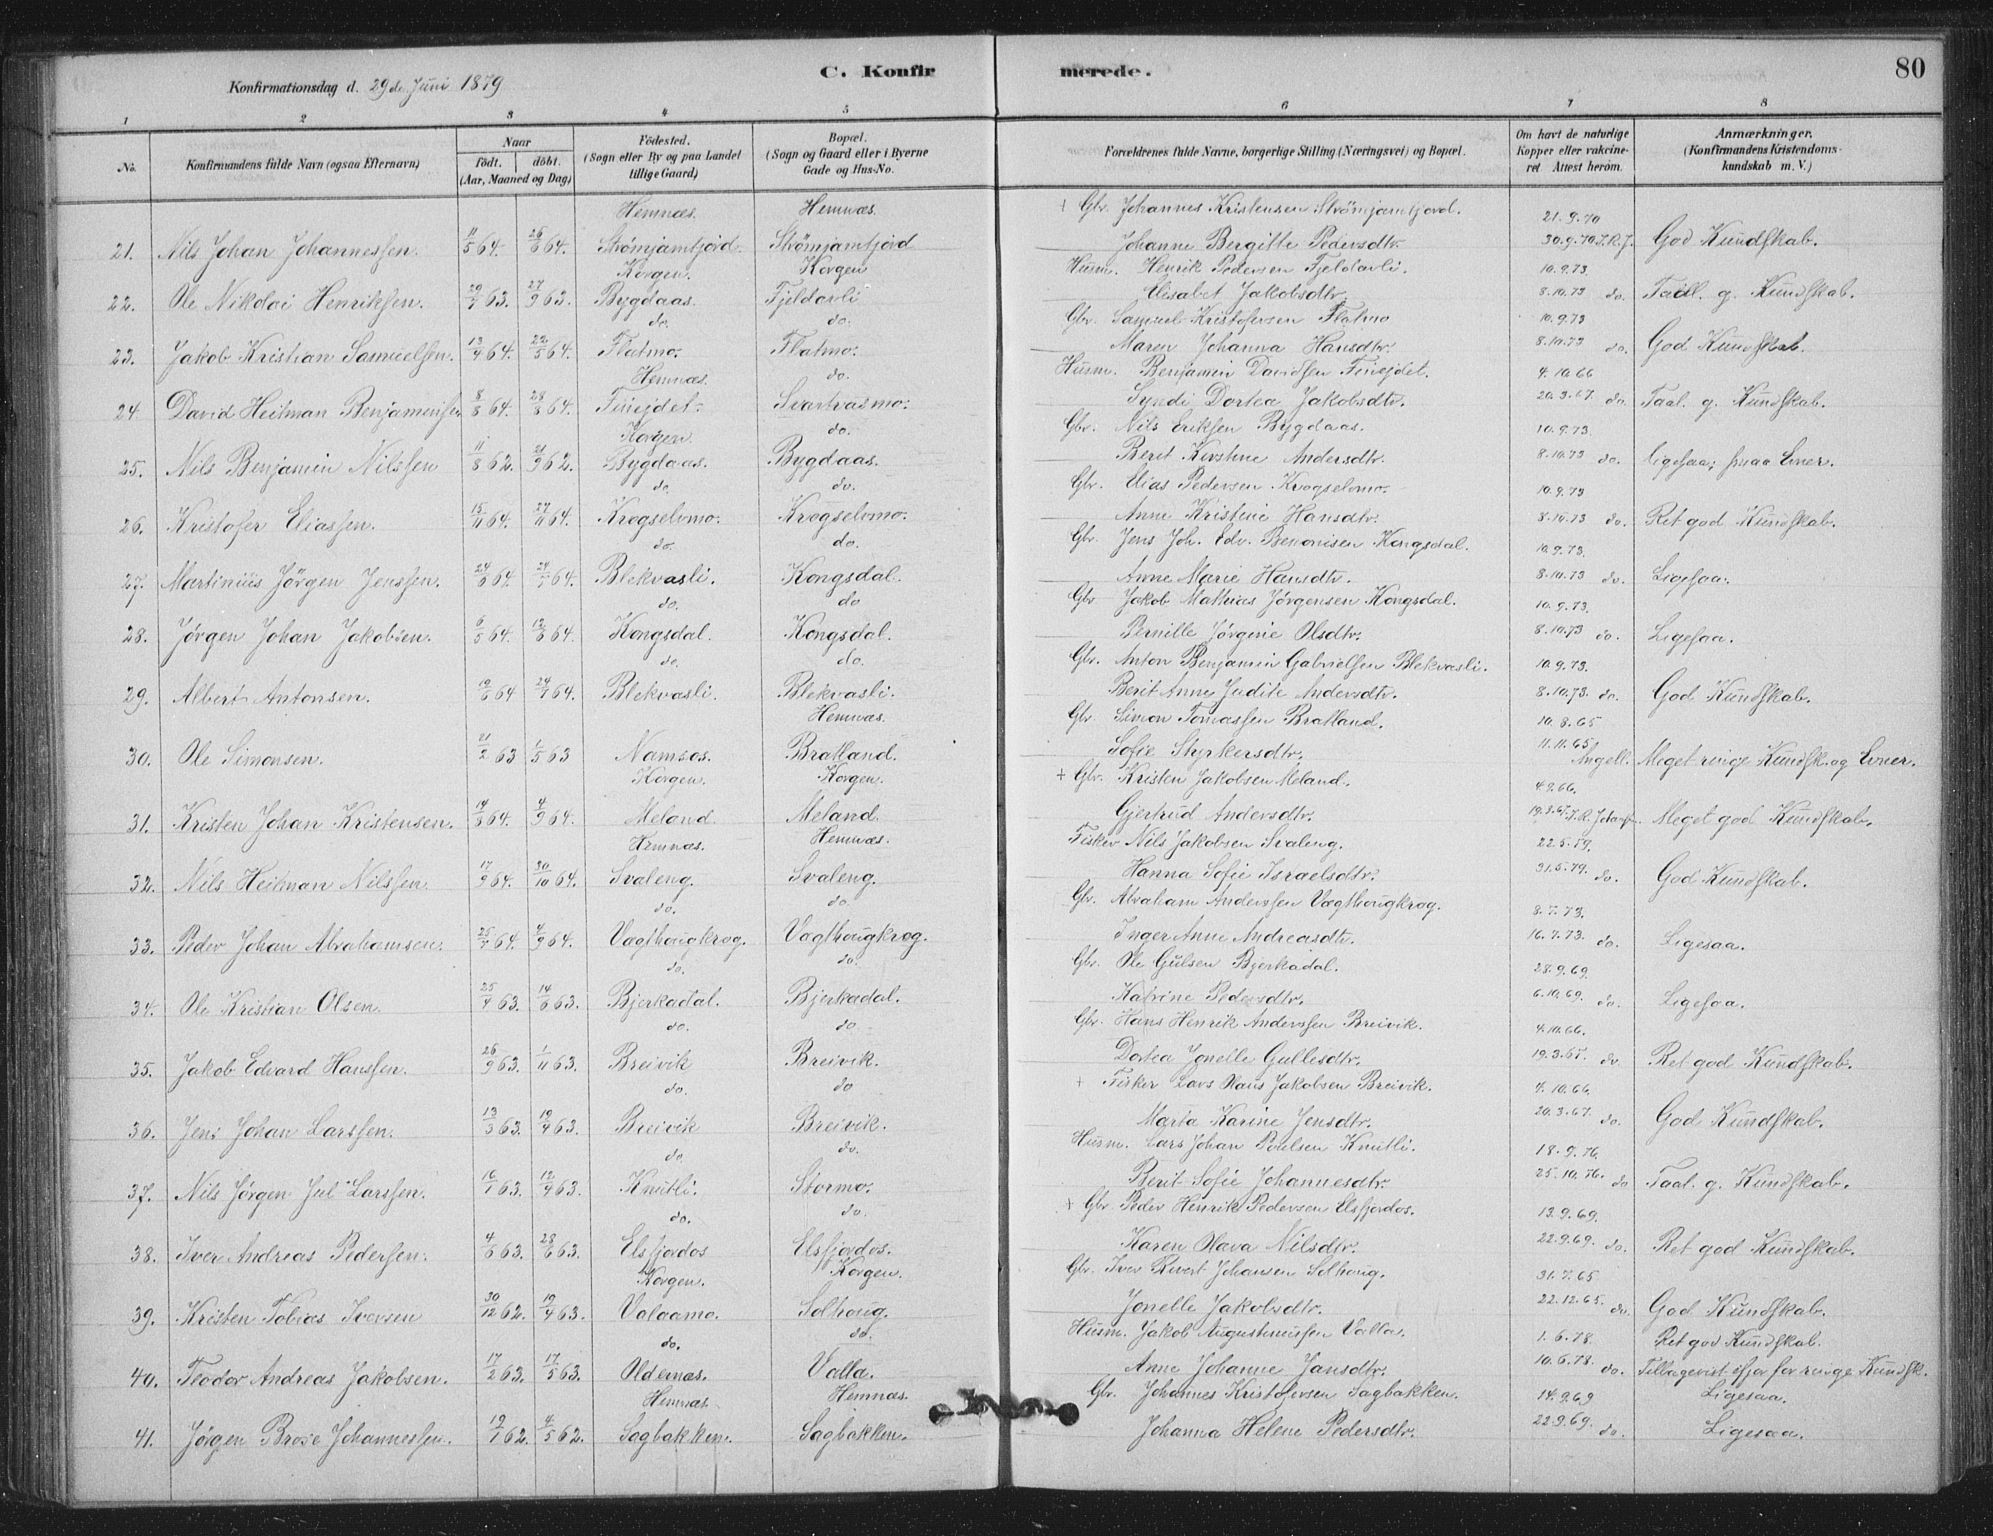 80
C. Konfirmerede.
Konfirmationsdag d. 29de Juni 1879
1 2 3 4 5 6 7 8
No. Konfirmandens fulde Navn (ogsaa Efternavn) Naar født. døbt. (Aar, Maaned og Dag) Födested. (Sogn eller By og paa Landet tillige Gaard) Bopæl. (Sogn og Gaard eller i Byerne Gade og Hus-No. Forældrenes fulde Navne, borgerlige Stilling (Næringsvei) og Bopæl. Om havt de naturlige Kopper eller vakcineret Attest herom. Anmærkninger. (Konfirmandens Kristendomskundskab m. V.)
Hemnæs. Hemnæs. + Gbr. Johannes Kristensen Strömjamtjord. 21.9.70
21. Nils Johan Johannessen 11/5 64. 26/6 64. Strömjamtjord. Strömjamtjord Johanne Bergitte Pedersdtr. 30.9.70 J.R.J. God Kundskab.
Korgen. Korgen Husm. Henrik Pedersen Fjeldavli. 10.9.73.
22. Ole Nikolai Henriksen. 29/7 63. 27/9 63. Bygdaas. Fjeldavli Elisabet Jakobsdtr. 8.10.73 do. Taal. g. Kundskab.
do. do. Gbr. Samuel Kristofersen Flatmo 10.9.73
23. Jakob Kristian Samuelsen. 13/4 64. 22/5 64. Flatmo. Flatmo. Maren Johanna Hansdtr. 8.10.73 do. God Kundskab.
Hemnæs. do. Husm. Benjamin Davidsen Finejdet. 4.10.66
24. David Heitman Benjaminsen 8/8 64. 28/8 64. Finejdet. Svartvasmo. Syndi Dortea Jakobsdtr. 20.3.67. do. Taal. g. Kundskab.
Korgen. do. Gbr. Nils Eriksen Bygdaas. 10.9.73.
25. Nils Benjamin Nilssen 11/8 62. 21/9 62. Bygdaas. Bygdaas. Berit Kirstine Andersdtr. 8.10.73 do. Ligesaa; smaa Evner.
do. do. Gbr. Elias Pedersen Krogselvmo. 10.9.73
26. Kristofer Eliassen. 15/11 64. 27/11 64. Krogselvmo. Krogselvmo. Anne Kristine Hansdtr. 8.10.73 do. Ret god Kundskab.
do. do. Gbr. Jens Joh. Edv. Benonisen Kongsdal. 10.9.73.
27. Martinius Jörgen Jenssen. 24/6 64. 24/7 64. Blekvasli. Kongsdal. Anne Marie Hansdtr. 8.10.73 do. Ligesaa.
do. do Gbr Jakob Mathias Jörgensen Kongsdal. 10.9.73.
28. Jörgen Johan Jakobsen. 6/5 64. 12/6 64. Kongsdal. Kongsdal. Pernille Jörgine Olsdtr. 8.10.73 do. Ligesaa.
do. do. Gbr. Anton Benjamin Gabrielsen Blekvasli. 10.9.73.
29. Albert Antonsen. 12/6 64 24/7 64. Blekvasli. Blekvasli. Berit Anne Judite Andersdtr. 8.10.73. do. God Kundskab.
Hemnæs. Gbr. Simon Tomassen Bratland. 10.8.65
30. Ole Simonsen. 21/2 63 1/5 63 Namsos. Bratland. Sofie Styrkersdtr. 11.11.65 Angell. Meget ringe Kundsk. og Evner.
Korgen. Korgen. + Gbr. Kristen Jakobsen Meland. 4.9.66.
31. Kristen Johan Kristensen. 14/6 64. 4/9 64. Meland. Meland. Gjertrud Andersdtr. 19.3.67. Meget god Kundskab.
Hemnæs. Hemnæs. Fisker Nils Jakobsen Svaleng. 22.5.79.
32. Nils Heitman Nilssen 17/9 64. 30/10 64. Svaleng. Svaleng. Hanna Sofie Israelsdtr. 31.5.79. do. God Kundskab.
do. do. Gbr. Abraham Anderssen Vagthougkrog. 8.7.73.
33. Peder Johan Abrahamsen. 25/7 64. 4/9 64. Vagthougkrog. Vagthougkrog. Inger Anne Andreasdtr. 16.7.73. do. Ligesaa.
do. do. Gbr. Ole Gulsen Bjerkadal. 28.9.69.
34. Ole Kristian Olsen. 25/4 63. 14/6 63. Bjerkadal. Bjerkadal. Katrine Pedersdtr. 6.10.69. do. Ligesaa.
do. do Gbr. Hans Henrik Anderssen Breivik. 4.10.66.
35. Jakob Edvard Hanssen. 26/9 63. 1/11 63. Breivik Breivik. Dortea Jonelle Gullesdtr. 19.3.67. do. Ret god Kundskab.
do. do + Fisker Lars Jakobsen Breivik. 4.10.66.
36. Jens Johan Larssen. 13/3 63. 19/4 63. Breivik Breivik. Marta Karine Jensdtr. 20.3.67. do. God Kundskab.
do. do. Husm. Lars Johan Poulsen Knutli. 18.9.76.
37. Nils Jörgen Jul Larssen. 16/1 63. 12/4 63. Knutli. Stormo. Berit Sofie Johannesdtr. 25.10.76. do Taal. g. Kundskab.
do. do. + Gbr. Peder Henrik Pedersen Elsfjordos. 13.9.69.
38. Iver Andreas Pedersen. 4/6 63. 28/6 63. Elsfjordos Elsfjordos. Karen Olava Nilsdtr. 22.9.69. do. Ret god Kundskab.
Korgen. Korgen. Gbr. Iver Johansen Solhoug. 31.7.65
39. Kristen Tobias Iversen 30/12 62. 19/4 63. Valaamo. Solhoug. Jonelle Jakobsdtr. 22.12.65. do. God Kundskab.
do. do. Husm. Jakob Augustinussen Valla. 1.6.78. Ret god Kundskab.
40. Teodor Andreas Jakobsen. 17/2 63. 17/5 63. Oldernæs. Valla. Anne Johanne Jansdtr. 10.6.78. do. Tilbagevist ifjor for ringe Kundsk.
Hemnæs. Hemnæs. Gbr. Johannes Kristofersen Sagbakken. 14.9.69 Ligesaa.
41. Jörgen Brose Johannessen. 19/1 62. 4/5 62. Sagbakken. Sagbakken. Johanna Helene Pedersdtr. 22.9.69. do. Ligesaa.